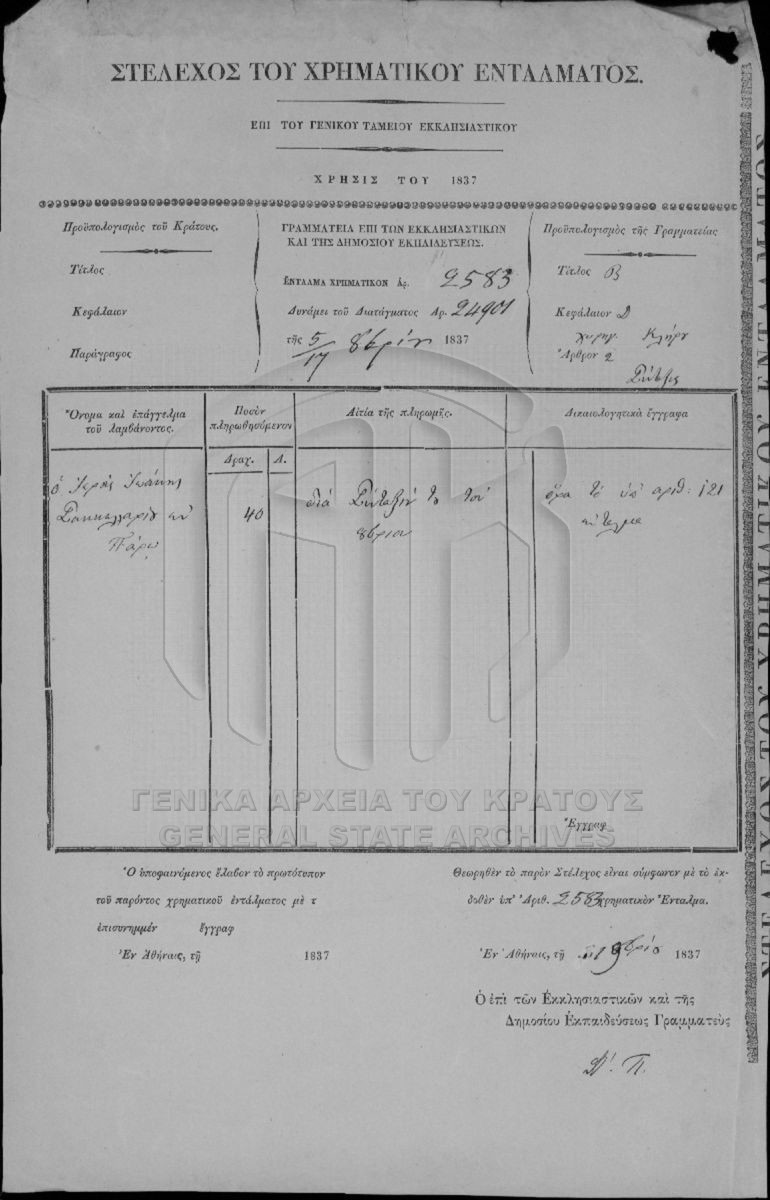 ΣΤΕΛΕΧΟΣ ΤΟΥ ΧΡΗΜΑΤΙΚΟΥ ΕΝΤΑΛΜΑΤΟΣ.
ΕΠΙ ΤΟΥ ΓΕΝΙΚΟΥ ΤΑΜΕΙΟΥ ΕΚΚΛΗΣΙΑΣΤΙΚΟΥ
ΧΡΗΣΙΣ ΤΟΥ 1837
Προϋπολογισμὸς τοῦ Κράτους.
Τίτλος
Κεφάλαιον
Παράγραφος
ΓΡΑΜΜΑΤΕΙΑ ΕΠΙ ΤΩΝ ΕΚΚΛΗΣΙΑΣΤΙΚΩΝ
ΚΑΙ ΤΗΣ ΔΗΜΟΣΙΟΥ ΕΚΠΑΙΔΕΥΣΕΩΣ.
ΕΝΤΑΛΜΑ ΧΡΗΜΑΤΙΚΟΝ Ἀρ. 2583
Δυνάμει τοῦ Διατάγματος Αρ. 24901
τῆς 5/17 8βρίου 1837
Προϋπολογισμὸς τῆς Γραμματείας
Τίτλος Β
Κεφάλαιον Δ
Κλήρου
Ἄρθρον 2
Ὄνομα καὶ ἐπάγγελμα
τοῦ λαμβάνοντος.
Ποσὸν
πληρωθησόμενον
Δραχ. Λ.
Αἰτία τῆς πληρωμῆς.
Δικαιολογητικὰ ἔγγραφα
ὁ Ἱερεὺς Ἰωάννης
Πάρῳ
40
διὰ Σύνταξίν του τοῦ
8βρίου
ὅρα τὸ ὑπ' ἀριθ: 121
ἔνταλμα
Ἔγγραφ
ΓΕΝΙΚΑ ΑΡΧΕΙΑ ΤΟΥ ΚΡΑΤΟΥΣ
GENERAL STATE ARCHIVES
Ὁ ὑποφαινόμενος ἔλαβον τὸ πρωτότυπον
τοῦ παρόντος χρηματικοῦ ἐντάλματος μὲ τ
ἐπισυνημμέν ἔγγραφ
Ἐν Ἀθήναις, τῇ 1837
Θεωρηθὲν τὸ παρὸν Στέλεχος εἶναι σύμφωνον μὲ τὸ ἐκ-
δοθὲν ὑπ' Ἀριθ. 2583 χρηματικὸν Ἔνταλμα.
Ἐν Ἀθήναις, τῇ 8βρίου 1837
Ὁ ἐπὶ τῶν Ἐκκλησιαστικῶν καὶ τῆς
Δημοσίου Ἐκπαιδεύσεως Γραμματεὺς
Π.
ΣΤΕΛΕΧΟΣ ΤΟΥ ΧΡΗΜΑΤΙΚΟΥ ΕΝΤΑΛΜΑΤΟΣ